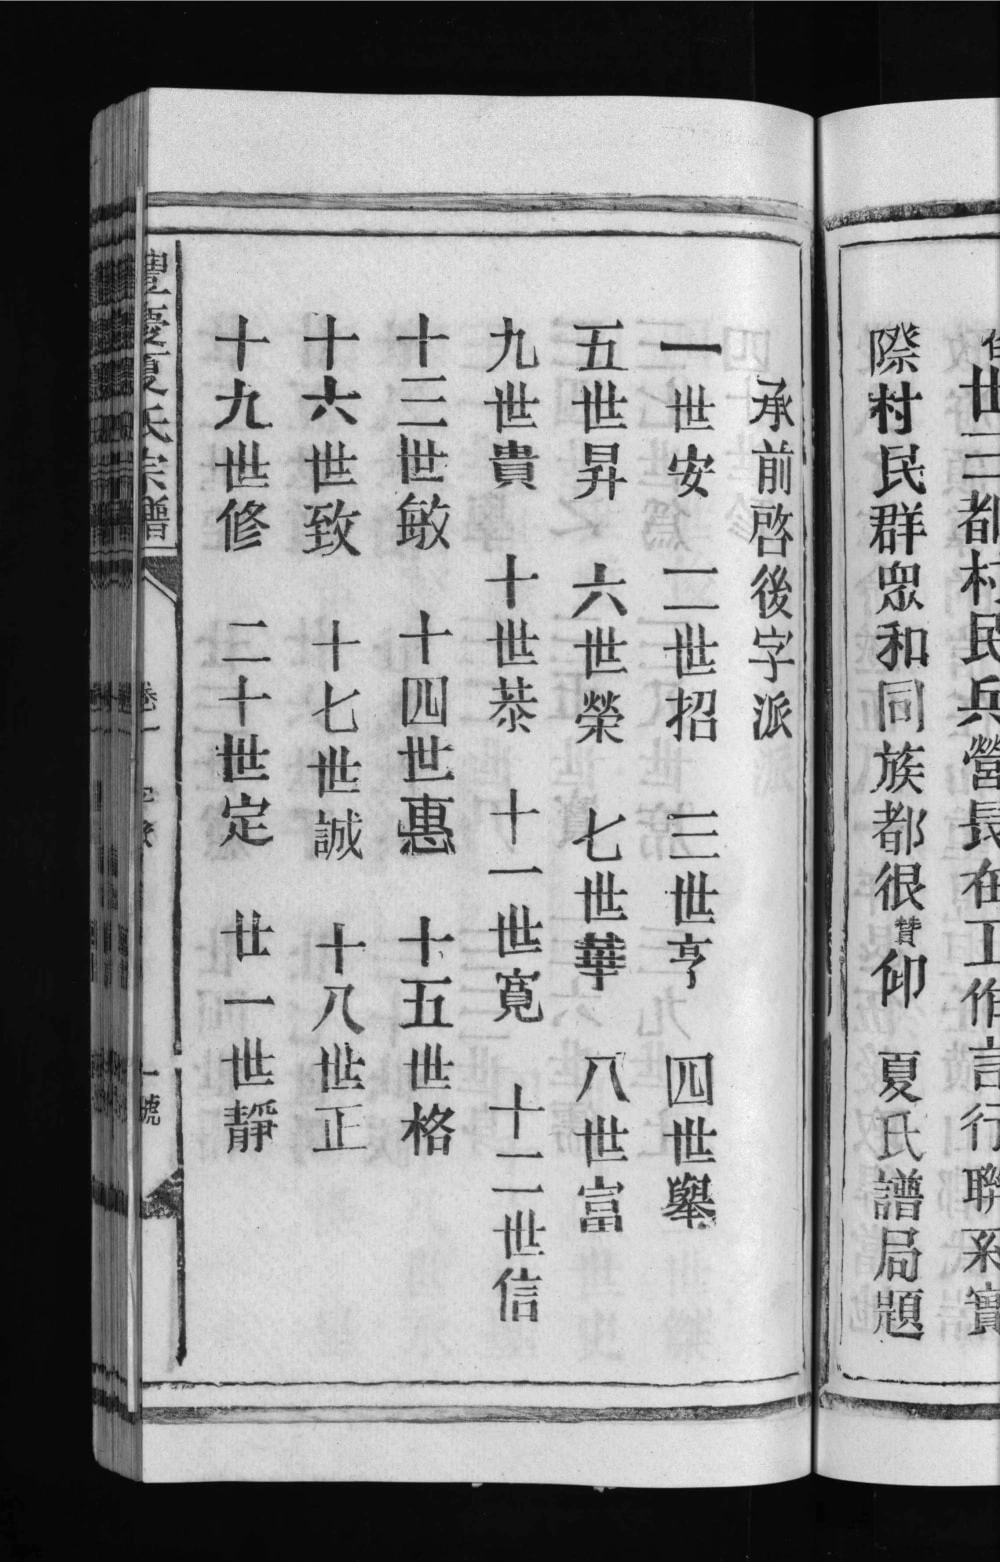 世三都村民兵營長在工作言行聯系實
際村民群眾和同族都很贊仰　夏氏譜局題
承前啓後字派
一世安　二世招　三世亨　四世舉
五世昇　六世榮　七世華　八世富
九世貴　十世恭　十一世寬　十二世信
十三世敏　十四世惠　十五世格
十六世致　十七世誠　十八世正
十九世修　二十世定　廿一世靜
豐慶夏氏宗譜　卷一　字派　一號